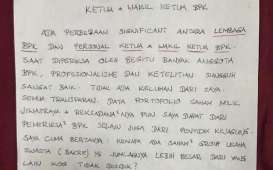 KETUA & WAKIL KETUA BPK
ADA PERBEDAAN SIGNIFICANT ANTARA LEMBAGA
BPK DAN PERSONAL KETUA & WAKIL KETUA BPK.
SAAT DIPERIKSA OLEH BEGITU BANYAK ANGGOTA
BPK, PROFESIONALISME DAN KETELITIAN SUNGGUH
SANGAT BAIK. TIDAK ADA KELUHAN DARI SAYA.
SEMUA TRANSPARAN. DATA PORTOFOLIO SAHAM MILIK
JIWASRAYA & REKSADANA²NYA PUN SAYA DAPAT DARI
PEMERIKSA² BPK SELAIN JUGA DARI PENYIDIK KEJAGUNG.
SAYA CUMA BERTANYA: KENAPA ADA SAHAM² GROUP USAHA
SWASTA (BAKRIE) YG JUMLAHNYA LEBIH BESAR DARI YANG
LAIN KOK TIDAK